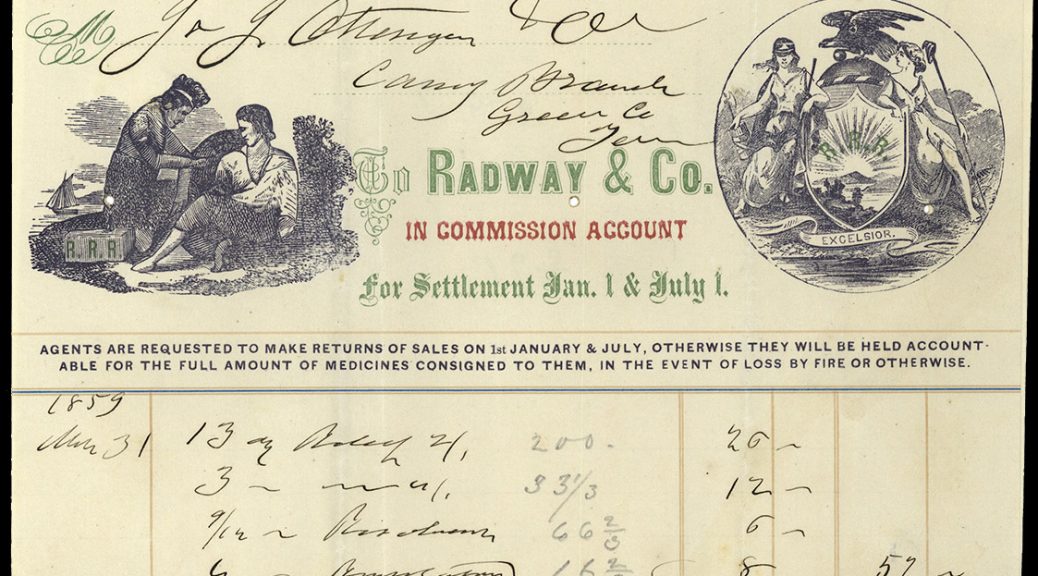 M Jo J & Co
Camy Branch
Green Co
Ten
To RADWAY & CO.
IN COMMISSION ACCOUNT
For Settlement Jan. 1 & July 1.
R.R.R
R.R.R.
EXCELSIOR.
AGENTS ARE REQUESTED TO MAKE RETURNS OF SALES ON 1st JANUARY & JULY, OTHERWISE THEY WILL BE HELD ACCOUNT-
ABLE FOR THE FULL AMOUNT OF MEDICINES CONSIGNED TO THEM, IN THE EVENT OF LOSS BY FIRE OR OTHERWISE.
1859
31 13 Relief 2/, 200. 26 ~
3 ~ 4/, 33 1/3 12 ~
9/12 ~ Resolvent 66 2/3 6 ~
6 ~ 16 2/3 8 52 ~